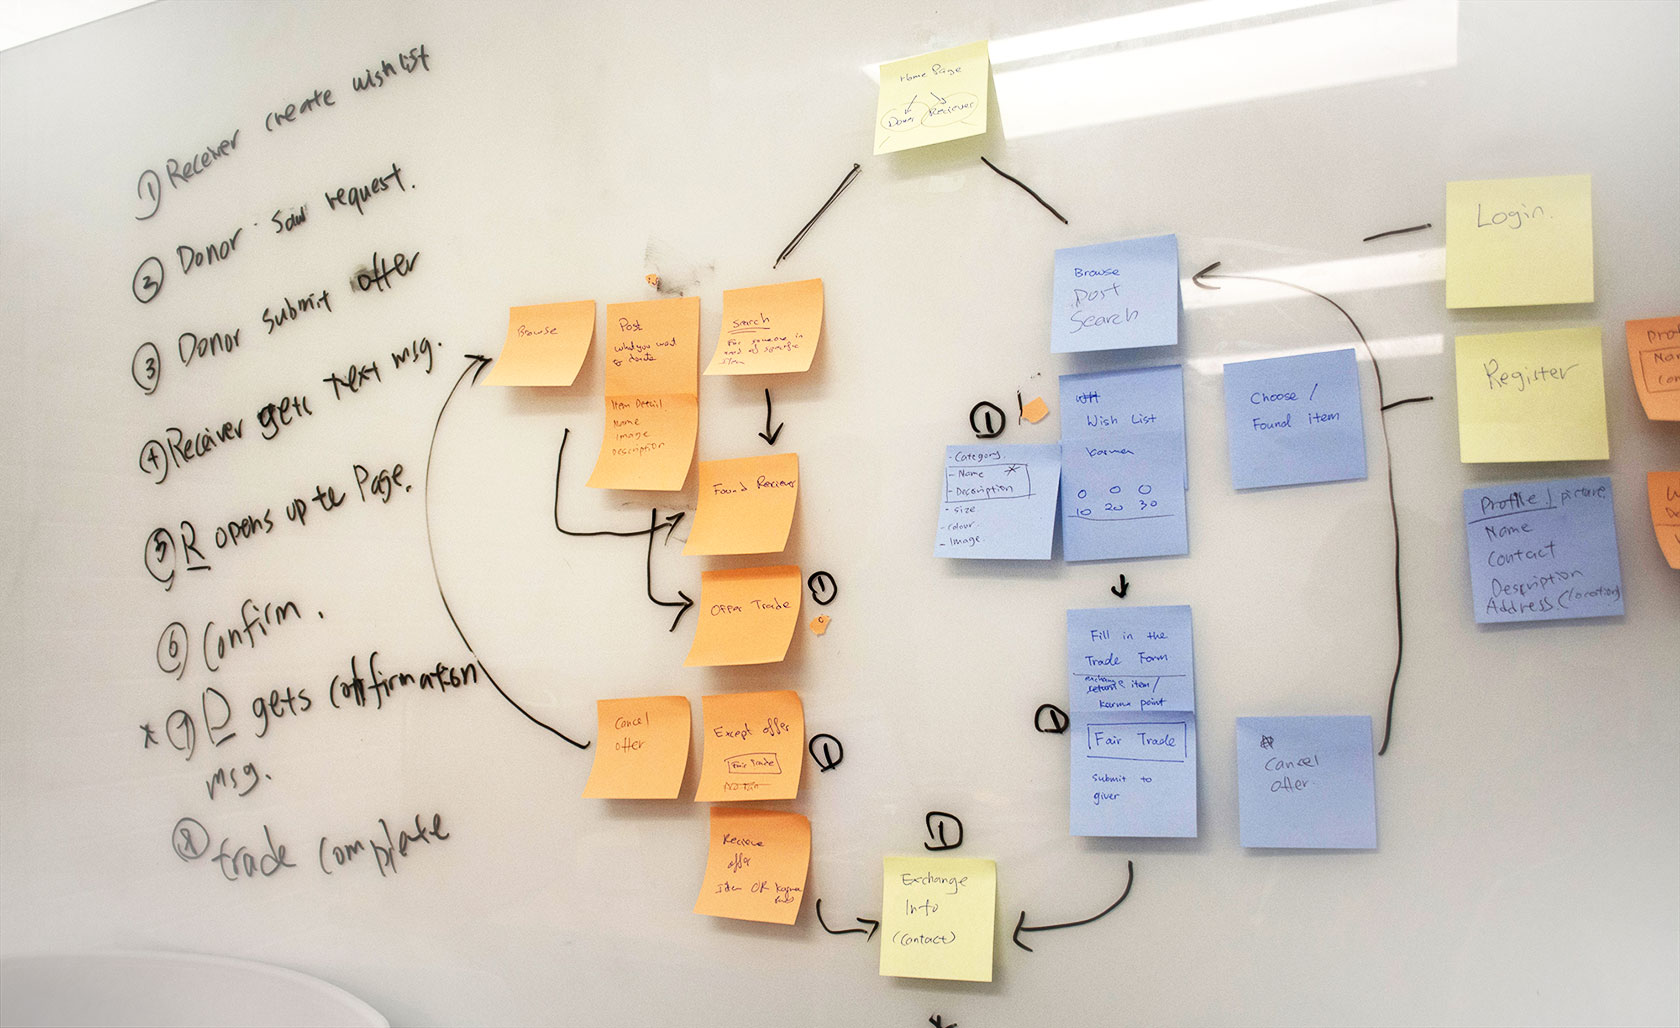 ① Receiver create wishlist
② Donor saw request.
③ Donor submit offer
④ Receiver gets text msg.
⑤ R opens up te Page.
⑥ Confirm.
* ⑦ D gets confirmation
msg.
⑧ trade complete
Home Page
Donor Reciever
Browse
Post
what you want
to donate
Item Detail
Name
Image
Description
Search
For someone in
need of specific
item
Found Reciever
Offer Trade
①
Cancel
offer
Except offer
Fair Trade
①
Recieve
offer
Item OR Karma
①
Exchange
Info
(contact)
Browse
Post
Search
①
- Category
- Name *
- Description
- Size
- Colour
- Image
Wish List
Karma
0 0 0
10 20 30
Choose /
Found item
Fill in the
Trade Form
exchange
return item /
karma point
①
Fair Trade
submit to
giver
Cancel
offer
Login.
Register
Profile / picture
Name
Contact
Description
Address (location)